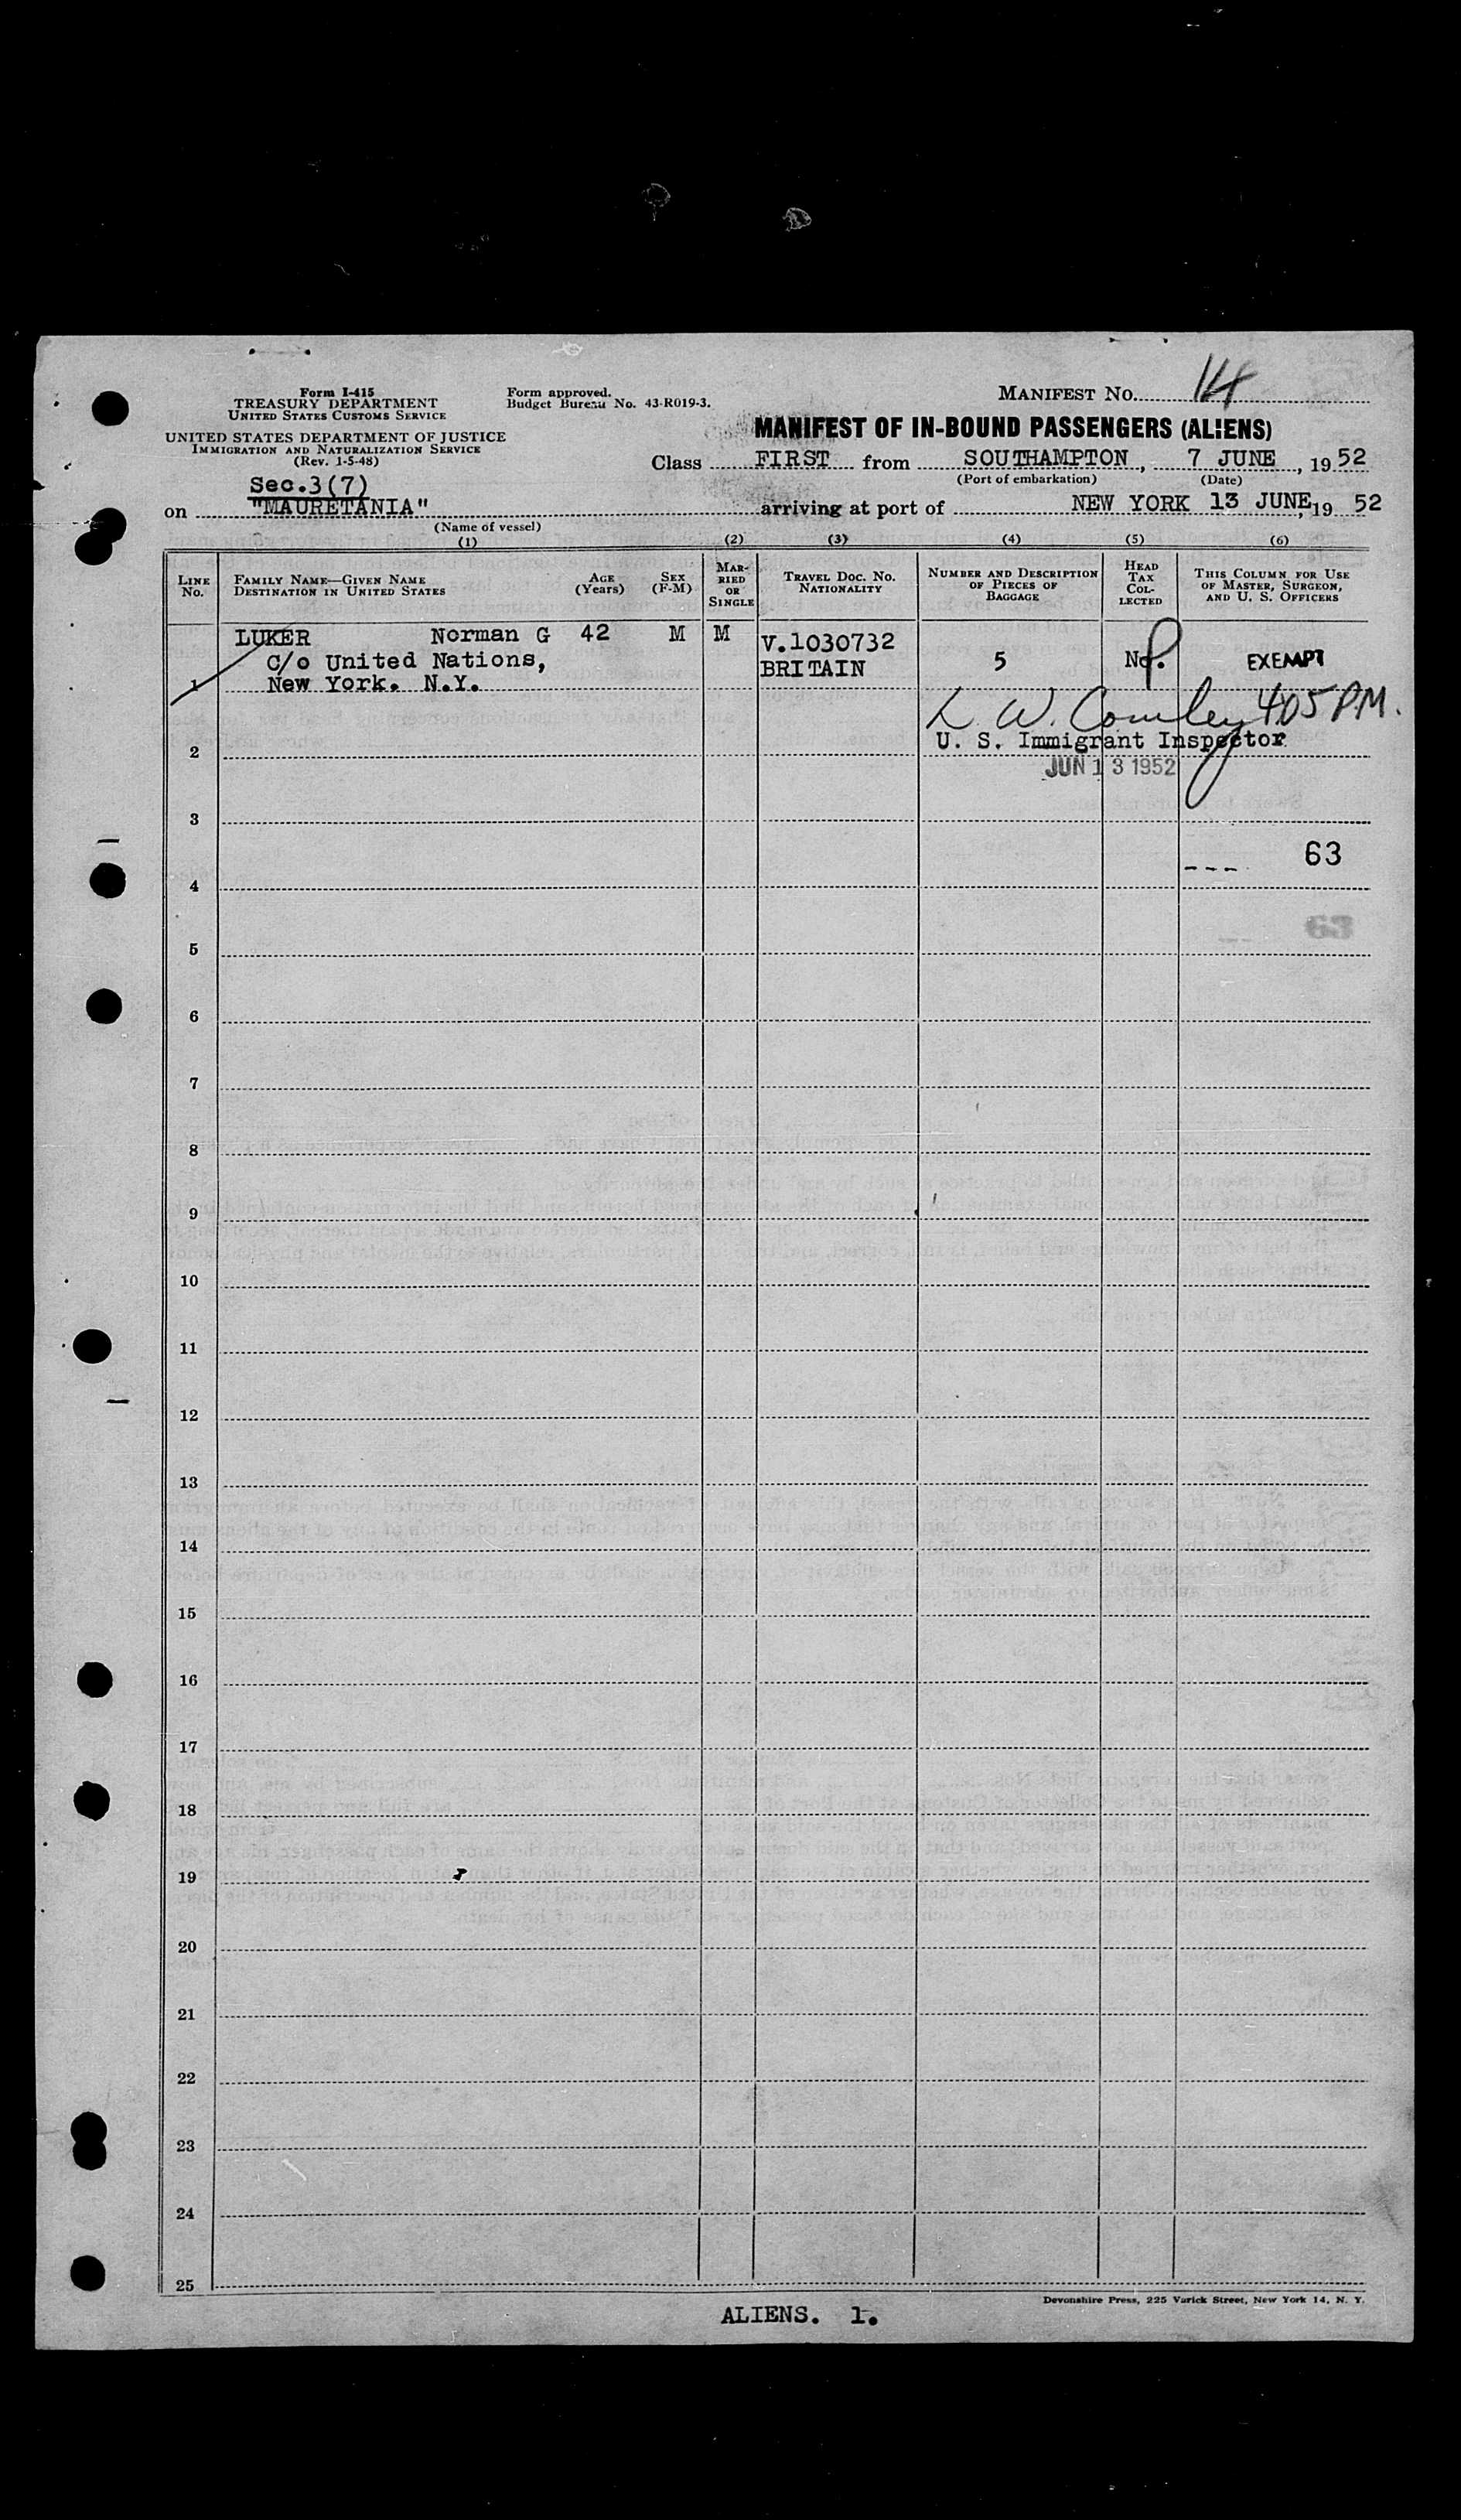 Form I-415
TREASURY DEPARTMENT
UNITED STATES CUSTOMS SERVICE
UNITED STATES DEPARTMENT OF JUSTICE
IMMIGRATION AND NATURALIZATION SERVICE
(Rev. 1-5-48)
Form approved.
Budget Bureau No. 43-R019-3.
MANIFEST NO. 14
MANIFEST OF IN-BOUND PASSENGERS (ALIENS)
Class FIRST from SOUTHAMPTON, 7 JUNE, 1952
(Port of embarkation) (Date)
Sec.3(7)
on "MAURETANIA" arriving at port of NEW YORK 13 JUNE, 19 52
(Name of vessel)
(1) (2) (3) (4) (5) (6)
LINE NO.
FAMILY NAME—GIVEN NAME
DESTINATION IN UNITED STATES
AGE (YEARS)
SEX (F-M)
MARRIED OR SINGLE
TRAVEL DOC. NO.
NATIONALITY
NUMBER AND DESCRIPTION OF PIECES OF BAGGAGE
HEAD TAX COLLECTED
THIS COLUMN FOR USE OF MASTER, SURGEON, AND U. S. OFFICERS
LUKER Norman G 42 M M V.1030732
C/o United Nations, BRITAIN 5 No. EXEMPT
1 New York. N.Y.
4:05 PM.
2 U. S. Immigrant Inspector
JUN 13 1952
3
63
4
63
5
6
7
8
9
10
11
12
13
14
15
16
17
18
19
20
21
22
23
24
25
Devonshire Press, 225 Varick Street, New York 14, N. Y.
ALIENS. 1.